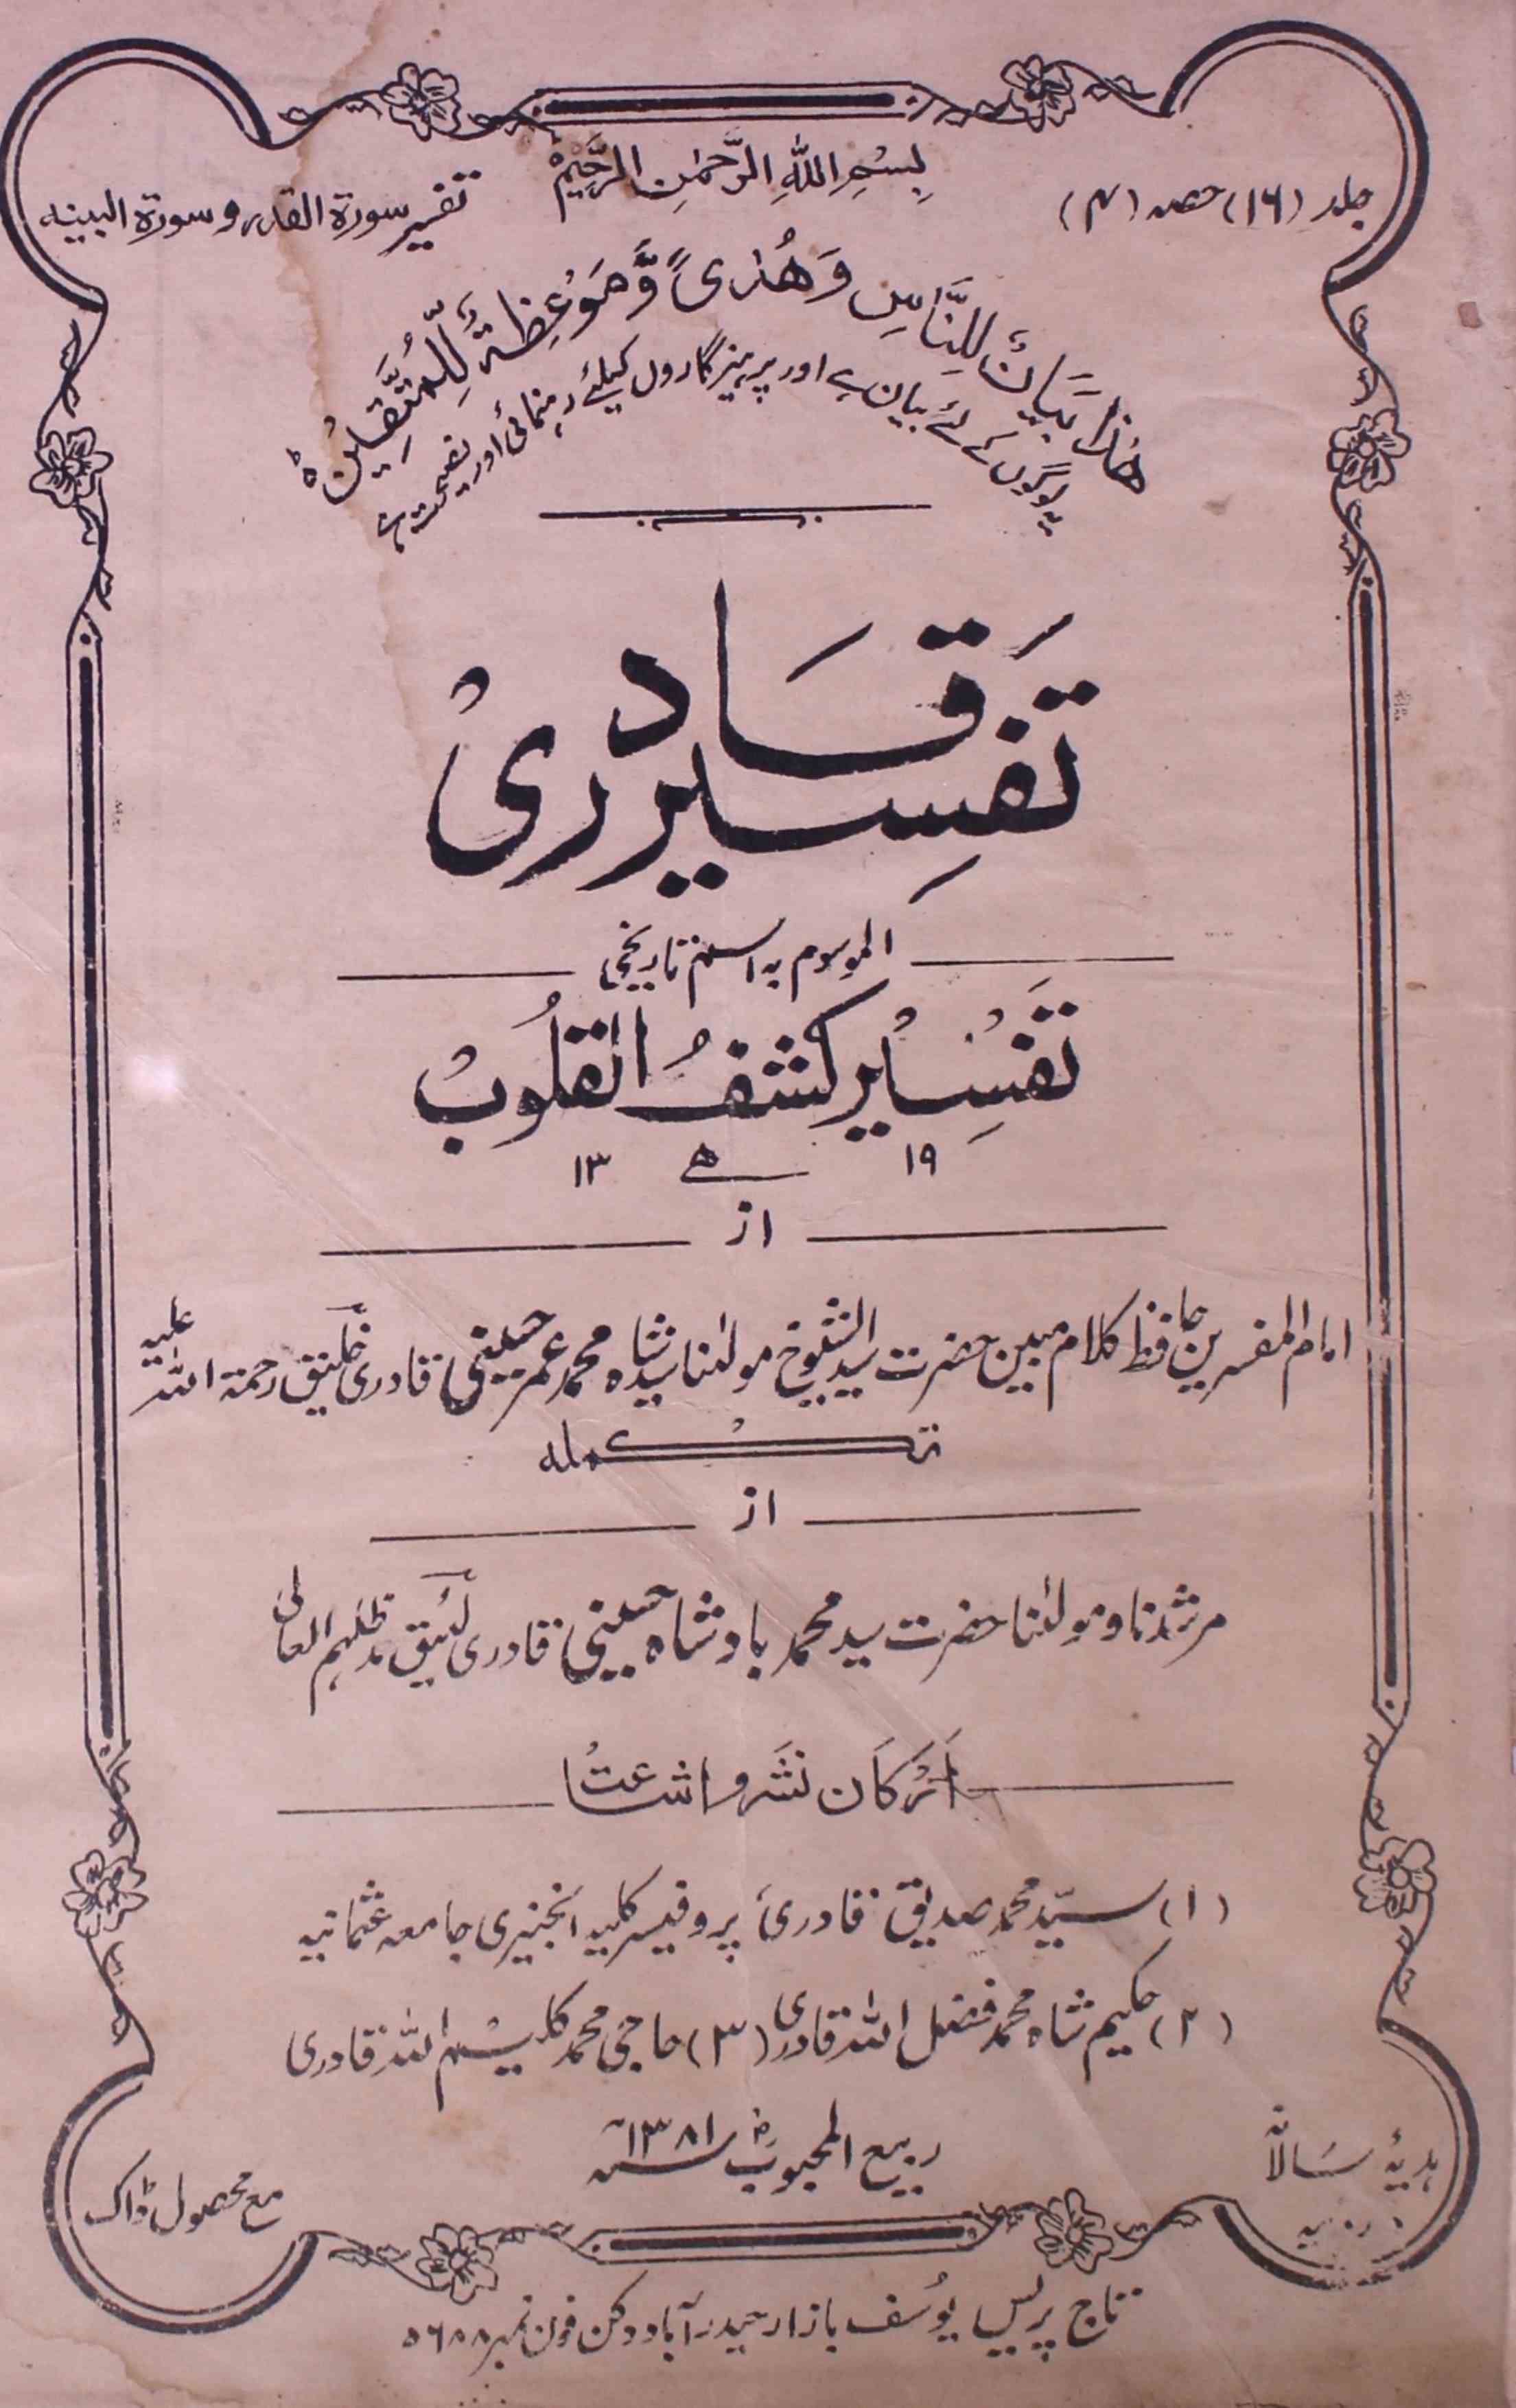 بِسْمِ اللّٰهِ الرَّحْمٰنِ الرَّحِيْمْ
جلد (۱۶) حصہ (۴)
تفسیر سورۃ القدر و سورۃ البینہ
هٰذَا بَيَانٌ لِلنَّاسِ وَهُدًى وَّمَوْعِظَةٌ لِّلْمُتَّقِيْنَ ۵
یہ لوگوں کے لئے بیان ہے اور پرہیزگاروں کیلئے رہنمائی اور نصیحت ہے
تَفسِیر قَادرِیْ
الموسوم بہ اسم تاریخی
تَفْسِیْر کشفُ القُلُوبْ
۱۹ ھ ۱۳
از
امام المفسرین حافظ کلام مبین حضرت سید الشیوخ مولٰنا سید شاہ محمد عمر حسینی قادری خلیق رحمۃ اللہ علیہ
تکملہ
از
مرشدنا و مولٰنا حضرت سید محمد بادشاہ حسینی قادری لئیق مدظلہم العالی
اَرْکَان نشَر و اشاعتُ
(۱) سیّد محمد صدیق قادری پروفیسر کلیہ انجنیری جامعہ عثمانیہ
(۲) حکیم شاہ محمد فضل اللہ قادری (۳) حاجی محمد کلیم اللہ قادری
ربیع المحبوب ۱۳۸۱
ہدیۂ سَالانہ
مع محصول ڈاک
تاج پریس یوُسف بازار حیدرآباد دکن فون نمبر ۵۶۸۸